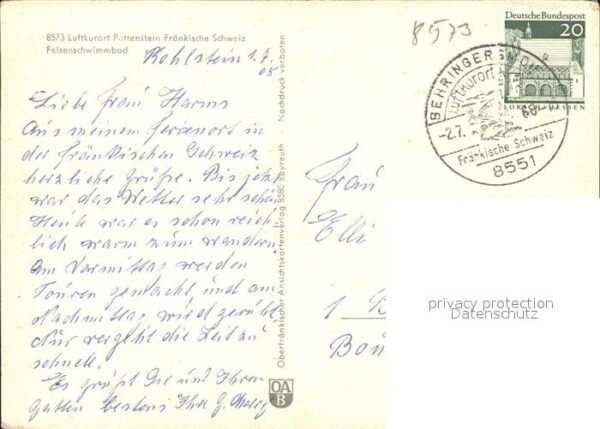 8573 Luftkurort Pottenstein Fränkische Schweiz
Felsenschwimmbad
8573
Kohlstein 1.7.
68
Liebe Frau Harms
Aus meinem Ferienort in
der Fränkischen Schweiz
herzliche Grüße. Bis jetzt
war das Wetter sehr schön
Heute war es schon reich
lich warm zum wandern
Am Vormittag werden
Touren gemacht und am
Nachmittag wird geruht.
Nur vergeht die Zeit zu
schnell.
Es grüßt Sie und Ihren
Gatten bestens Ihre G.
Nachdruck verboten
Oberfränkischer Ansichtskartenverlag 8580 Bayreuth
OA
B
Deutsche Bundespost
20
LORSCH/HESSEN
BEHRINGERSMÜHLE
Luftkurort
-2.7.
68
Fränkische Schweiz
8551
Frau
Elli
1
privacy protection
Datenschutz